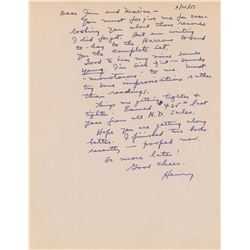 3/2/51
Dear Jim and Marian —
You must forgive me for over-
looking you about those records
I did forget. But am writing
to-day to the Barrons to send
you the Complete set.
Good to hear my voice sounds
young. I'm sick of it — sounds
monotonous — to me. must
try some improvisations rather
than readings.
Things are getting tighter &
tighter. Earned $4.35 last
year from all N.D. sales.
Hope you are getting along
better. I finished two books
recently — pooped now.
So more later!
Good cheer.
Henry